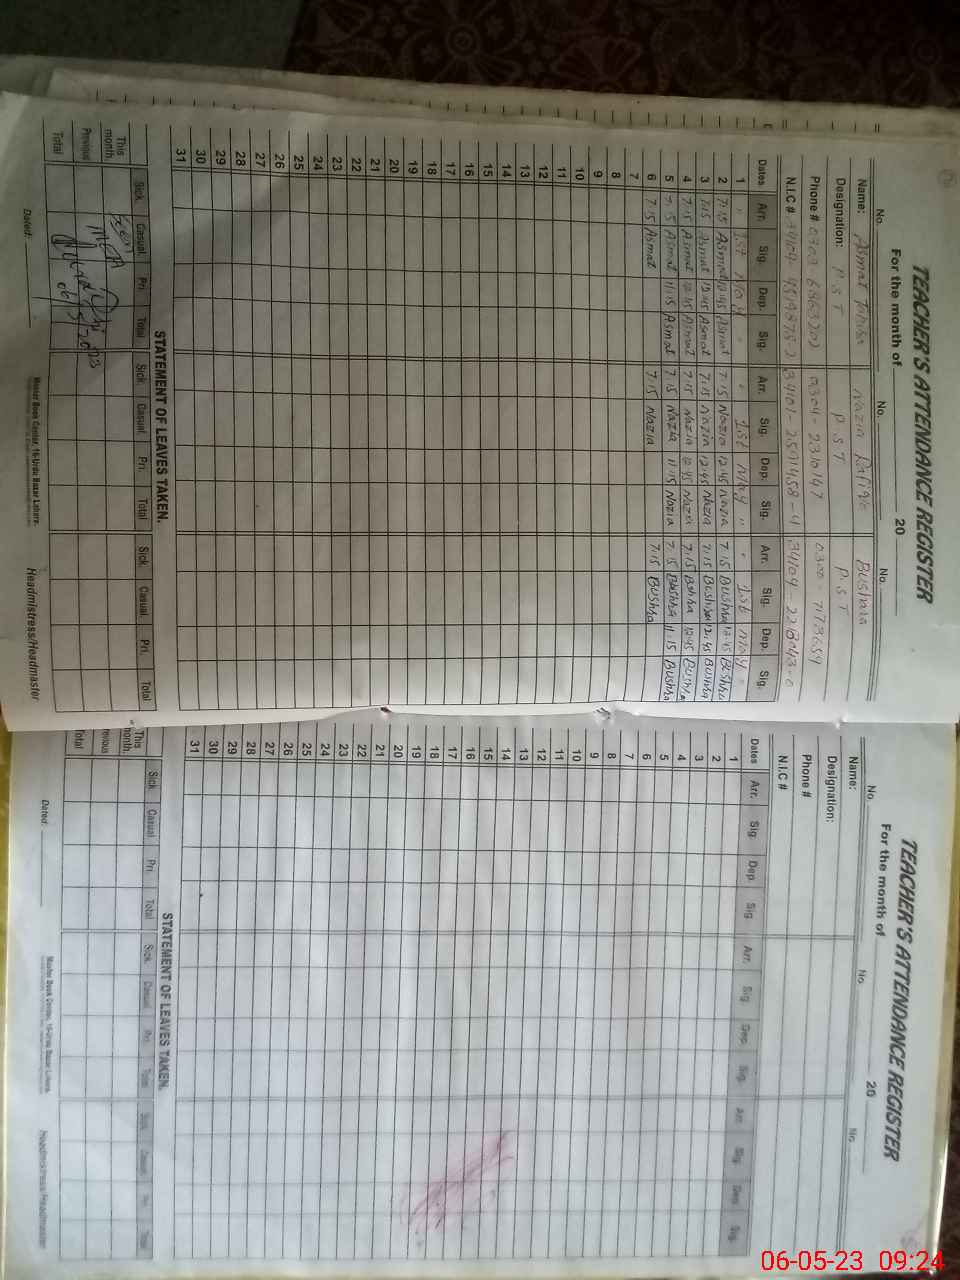 TEACHER'S ATTENDANCE REGISTER
For the month of 20
No. No. No.
Name: Asmat Nazia Bushara
Designation: P.S.T P S T P.S.T
Phone # 0304-2310147 0300-7173659
N.I.C #
Dates Arr. Sig. Dep. Sig. Arr. Sig. Dep. Sig. Arr. Sig. Dep. Sig.
1 " 1st May " " 1st May " " 1st May "
2 7:15 Asmat 12:45 Asmat 7:15 Nazia 12:45 Nazia 7:15 Bushra 12:45 Bushra
3 7:15 Asmat 12:45 Asmat 7:15 Nazia 12:45 Nazia 7:15 Bushra 12:45 Bushra
4 7:15 Asmat 12:45 Asmat 7:15 Nazia 12:45 Nazia 7:15 Bushra 12:45 Bushra
5 7:15 Asmat 11:15 Asmat 7:15 Nazia 11:15 Nazia 7:15 Bushra 11:15 Bushra
6 7:15 Asmat 7:15 Nazia 7:15 Bushra
7
8
9
10
11
12
13
14
15
16
17
18
19
20
21
22
23
24
25
26
27
28
29
30
31
STATEMENT OF LEAVES TAKEN.
Sick. Casual. Pri. Total Sick. Casual. Pri. Total Sick. Casual. Pri. Total
This month.
Seen
MEA
Previous
Total
Dated: Master Book Center, 16-Urdu Bazar Lahore. Headmistress/Headmaster
TEACHER'S ATTENDANCE REGISTER
For the month of 20
No. No. No.
Name:
Designation:
Phone #
N.I.C #
Dates Arr. Sig. Dep. Sig. Arr. Sig. Dep. Sig. Arr. Sig. Dep. Sig.
1
2
3
4
5
6
7
8
9
10
11
12
13
14
15
16
17
18
19
20
21
22
23
24
25
26
27
28
29
30
31
STATEMENT OF LEAVES TAKEN.
Sick. Casual. Pri. Total Sick. Casual. Pri. Total Sick. Casual. Pri. Total
This month.
Previous
Total
Dated: Master Book Center, 16-Urdu Bazar Lahore. Headmistress/Headmaster
06-05-23 09:24